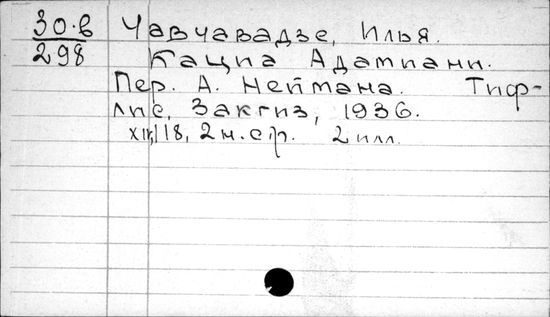 30.в Чавчавадзе, Илья.
298 Кациа Адамиани.
Пер. А. Неймана. Тиф-
лис, Закгиз, 1936.
118, 2 н.стр. 2 илл.